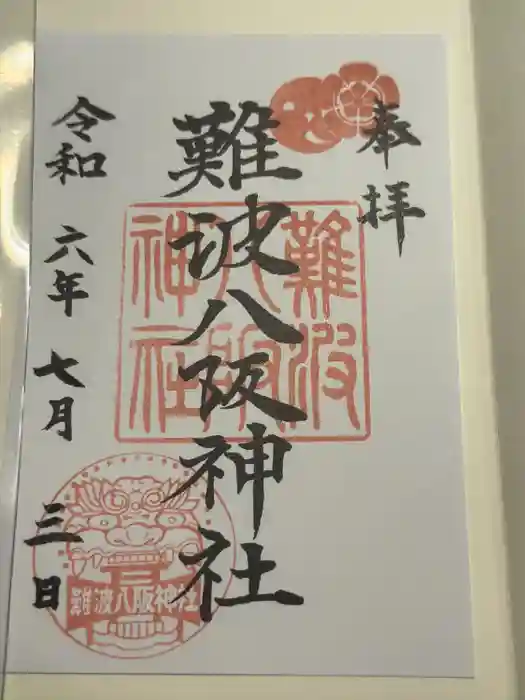 奉拝
難波八阪神社
令和六年七月三日
難波
八阪
神社
難波八阪神社